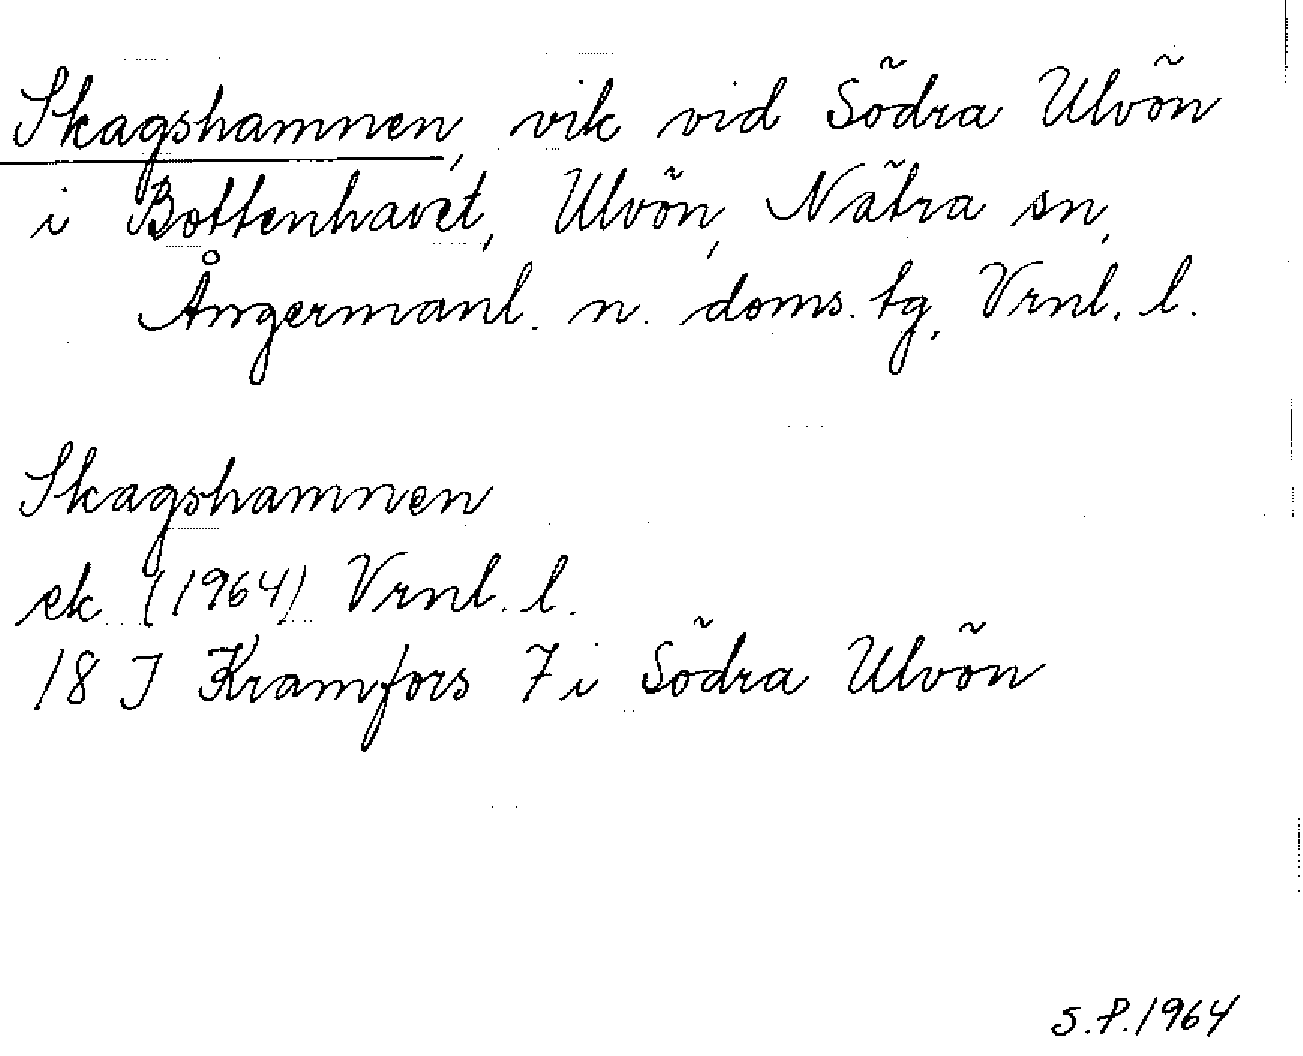 Skagshamnen, vik vid Södra Ulvön
i Bottenhavet, Ulvön, Nätra sn,
Ångermanl. n. doms. tg, Vrnl. l.
Skagshamnen
ek. (1964) Vrnl. l.
18 J Kramfors 7 i Södra Ulvön
S.P.1964